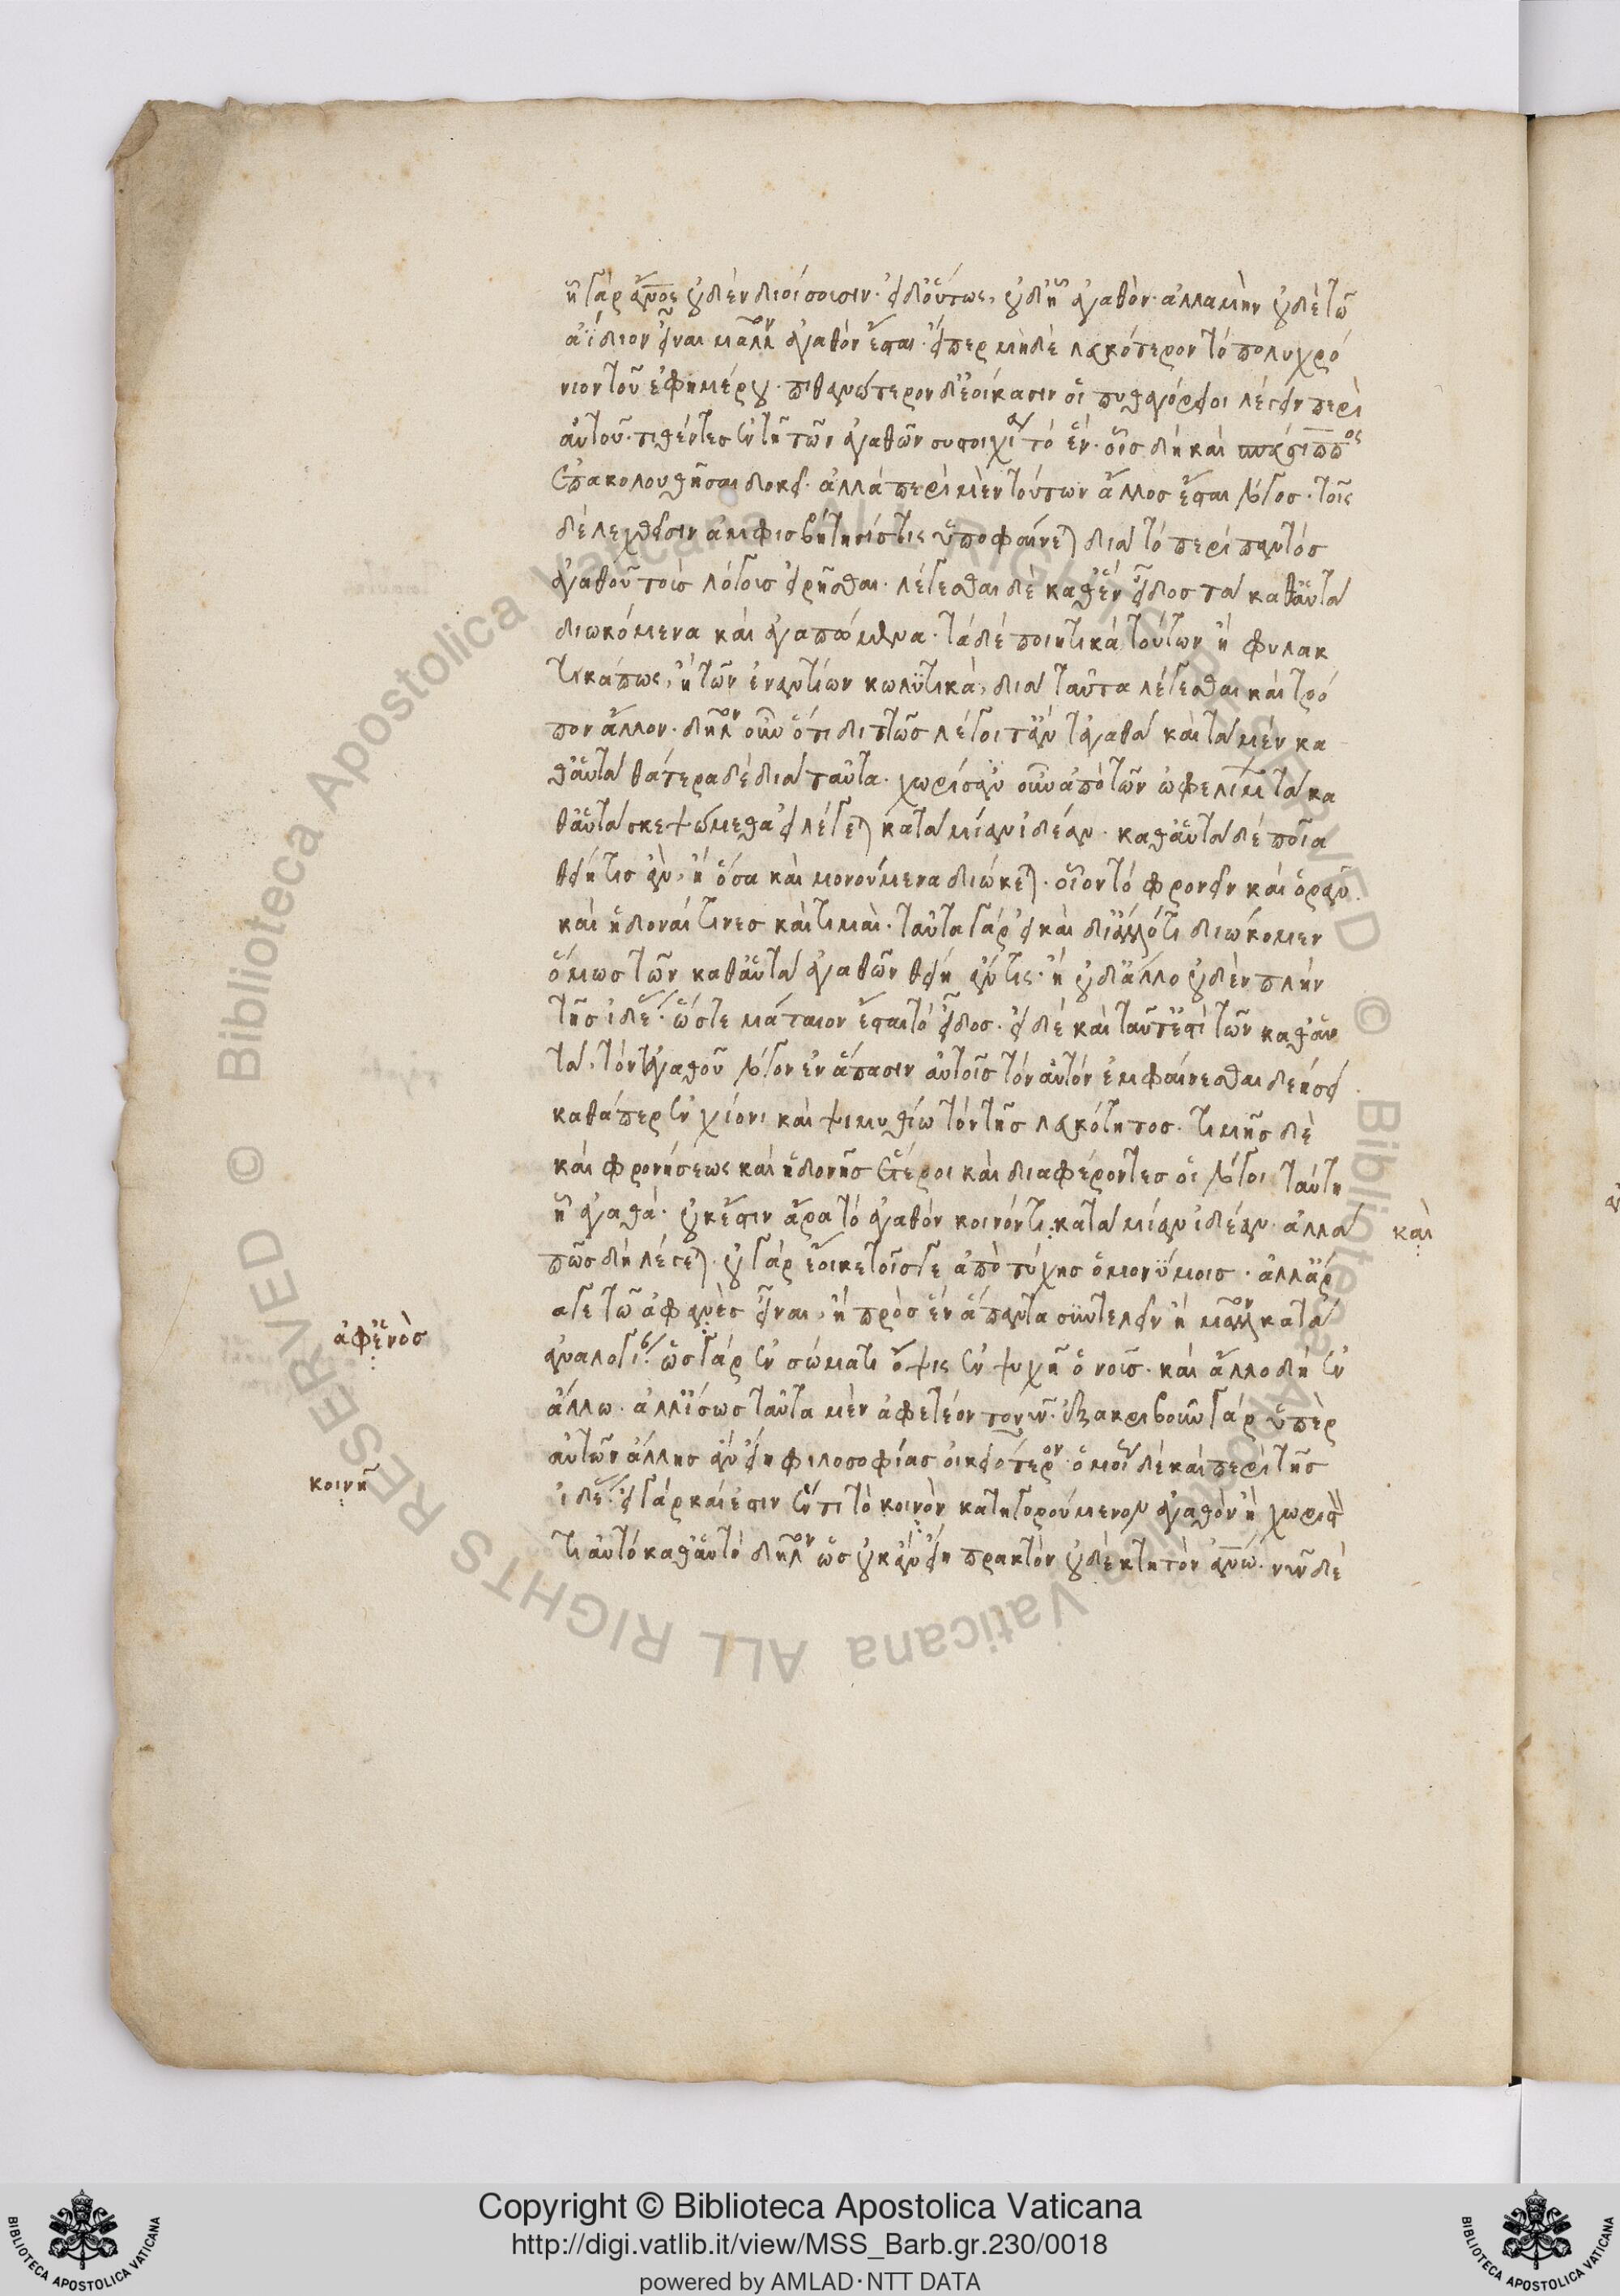 ἧ γάρ ἄνος οὐδὲν διοίσουσιν· εἰ δ' οὕτως, οὐδ' ἧ ἀγαθόν· ἀλλαμὴν οὐδὲ τῶ
ἀΐδιον εἶναι μᾶλλον ἀγαθόν ἔσται· εἴπερ μηδὲ λευκότερον τό πολυχρό
νιον τοῦ ἐφημέρου· πιθανώτερον δ' ἐοίκασιν οἱ πυθαγόρειοι λέγειν περὶ
αὐτοῦ· τιθέντες ἐν τῇ τῶν ἀγαθῶν συστοιχία τό ἕν· οἷς δή και
ἐπακολουθῆσαι δοκεῖ· ἀλλά περὶ μὲν τούτων ἄλλος ἔσται λόγος· τοῖς
δέ λεχθεῖσιν ἀμφισβήτησίς τις ὑποφαίνεται διατό περὶ παντός
ἀγαθοῦ τοὺς λόγους εἰρῆσθαι· λέγεσθαι δὲ καθ' ἕν εἶδος τα καθ' αὑτα
διωκόμενα και ἀγαπώμενα· τάδέ ποιητικά τούτων ἤ φυλακ
τικά πως, ἤ τῶν ἐναντίων κωλυτικὰ, δια ταῦτα λέγεσθαι και τρό
πον ἄλλον· δῆλον οὖν ὅτι διττῶς λέγοιτ' ἂν τἀγαθα και τα μέν κα
θ' αὑτα θάτερα δέ δια ταῦτα· χωρίσαντες οὖν ἀπὸ τῶν ὠφελίμων τα κα
θ' αὑτα σκεψώμεθα εἰ λέγεται κατα μίαν ἰδέαν· καθ' αὑτα δέ ποῖα
θείη τις ἂν, ἤ ὅσα και μονούμενα διώκεται· οἷον τό φρονεῖν και ὁρᾶν·
και ἡδοναί τινες και τιμαὶ· ταῦτα γάρ εἰ και δι' ἄλλό τι διώκομεν
ὅμως τῶν καθ' αὑτα ἀγαθῶν θείη ἄν τις· ἤ οὐδ' ἄλλο οὐδὲν πλήν
τῆς ἰδέας· ὥστε μάταιον ἔσται τό εἶδος· εἰ δέ και ταῦτ' ἐστὶ τῶν καθ' αὑ
τα, τὸν τἀγαθοῦ λόγον ἐν ἅπασιν αὐτοῖς τόν αὐτόν ἐμφαίνεσθαι δεήσει·
καθάπερ ἐν χιόνι και ψιμυθίω τόν τῆς λευκότητος· τιμῆς δὲ
και φρονήσεως και ἡδονῆς ἕτεροι και διαφέροντες οἱ λόγοι ταύτη
ἧ ἀγαθά· οὐκ ἔστιν ἄρα τό ἀγαθὸν κοινόν τι κατα μίαν ἰδέαν· ἀλλα
καὶ
πῶς δή λέγεται· οὐ γάρ ἔοικε τοῖς γε ἀπὸ τύχης ὁμωνύμοις· ἀλλ' ἄρ
αγε τῶ ἀφανὲς εἶναι, ἤ πρὸς ἕν ἅπαντα συντελεῖν ἤ μᾶλλον κατ'
ἀφ' ἑνὸς
ἀναλογίαν· ὡς γάρ ἐν σώματι ὄψις ἐν ψυχῇ ὁ νοῦς· και ἄλλο δή ἐν
ἄλλω· ἀλλ' ἴσως ταῦτα μὲν ἀφετέον τονῦν· ἐξακριβοῦν γάρ ὑπὲρ
αὐτῶν ἄλλης ἂν εἴη φιλοσοφίας οἰκειότερον· ὁμοίως δέ και περὶ τῆς
κοινῇ
ἰδέας· εἰ γάρ και ἔστιν ἕν τι τὸ κοινὸν κατηγορούμενον ἀγαθὸν ἤ χωριστὸν
τι αὐτό καθ' αὑτό δῆλον ὡς οὐκ ἂν εἴη πρακτὸν οὐδὲ κτητὸν ἀνω· νῦν δὲ
Copyright © Biblioteca Apostolica Vaticana
http://digi.vatlib.it/view/MSS_Barb.gr.230/0018
powered by AMLAD·NTT DATA
BIBLIOTECA APOSTOLICA VATICANA
BIBLIOTECA APOSTOLICA VATICANA
Biblioteca Apostolica Vaticana ALL RIGHTS RESERVED © Biblioteca Apostolica Vaticana ALL RIGHTS RESERVED ©